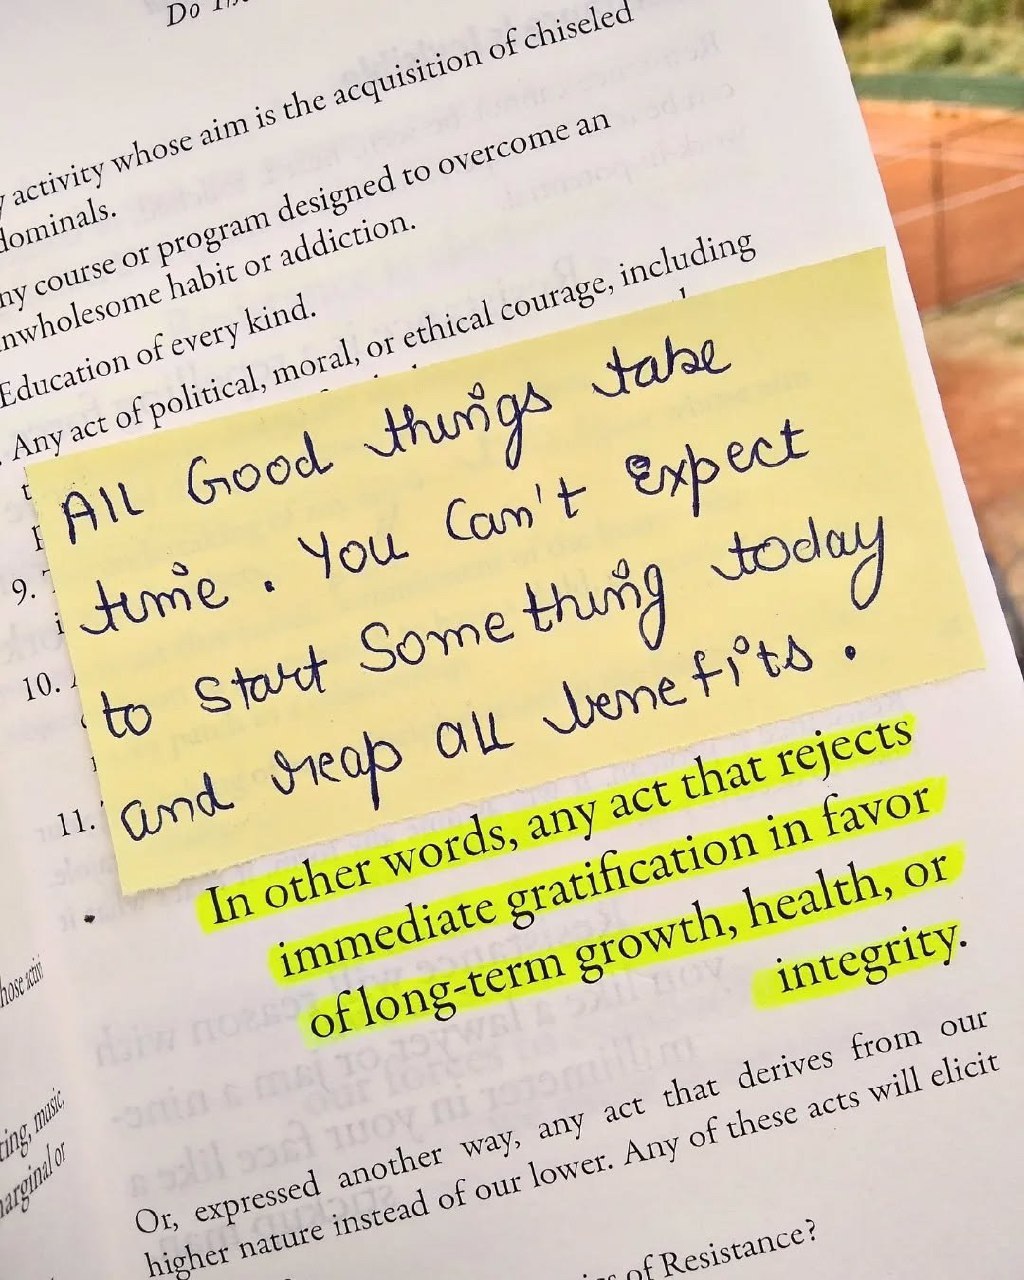 Do
activity whose aim is the acquisition of chiseled
dominals.
ny course or program designed to overcome an
nwholesome habit or addiction.
Education of every kind.
Any act of political, moral, or ethical courage, including
All Good things take
time. You Can't Expect
to start Something today
and reap all benefits.
9.
10.
11.
In other words, any act that rejects
immediate gratification in favor
of long-term growth, health, or
integrity.
hose activi
ting, music,
marginal or
Or, expressed another way, any act that derives from our
higher nature instead of our lower. Any of these acts will elicit
of Resistance?